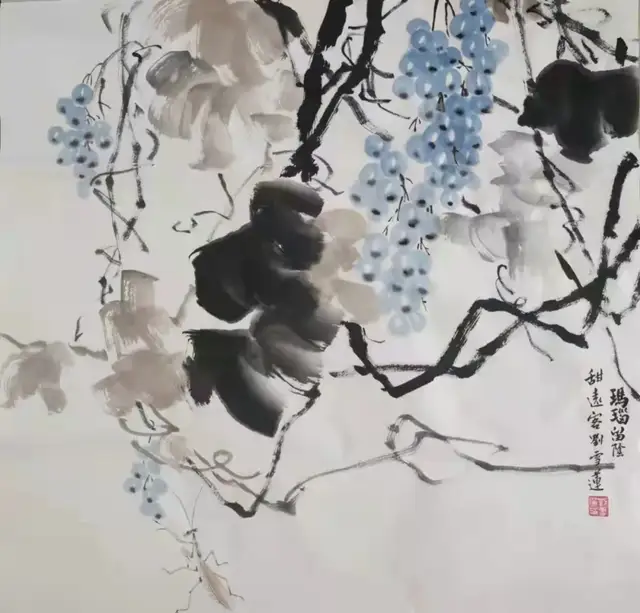 瑪瑙陰
甜遠客劉雪蓮